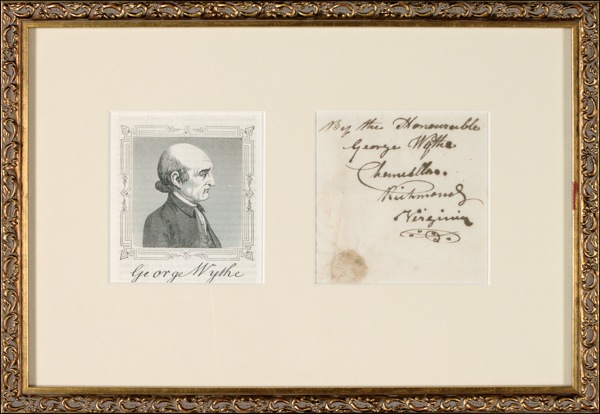 George Wythe
By the Honourable
George Wythe
Chancellor.
Richmond
Virginia